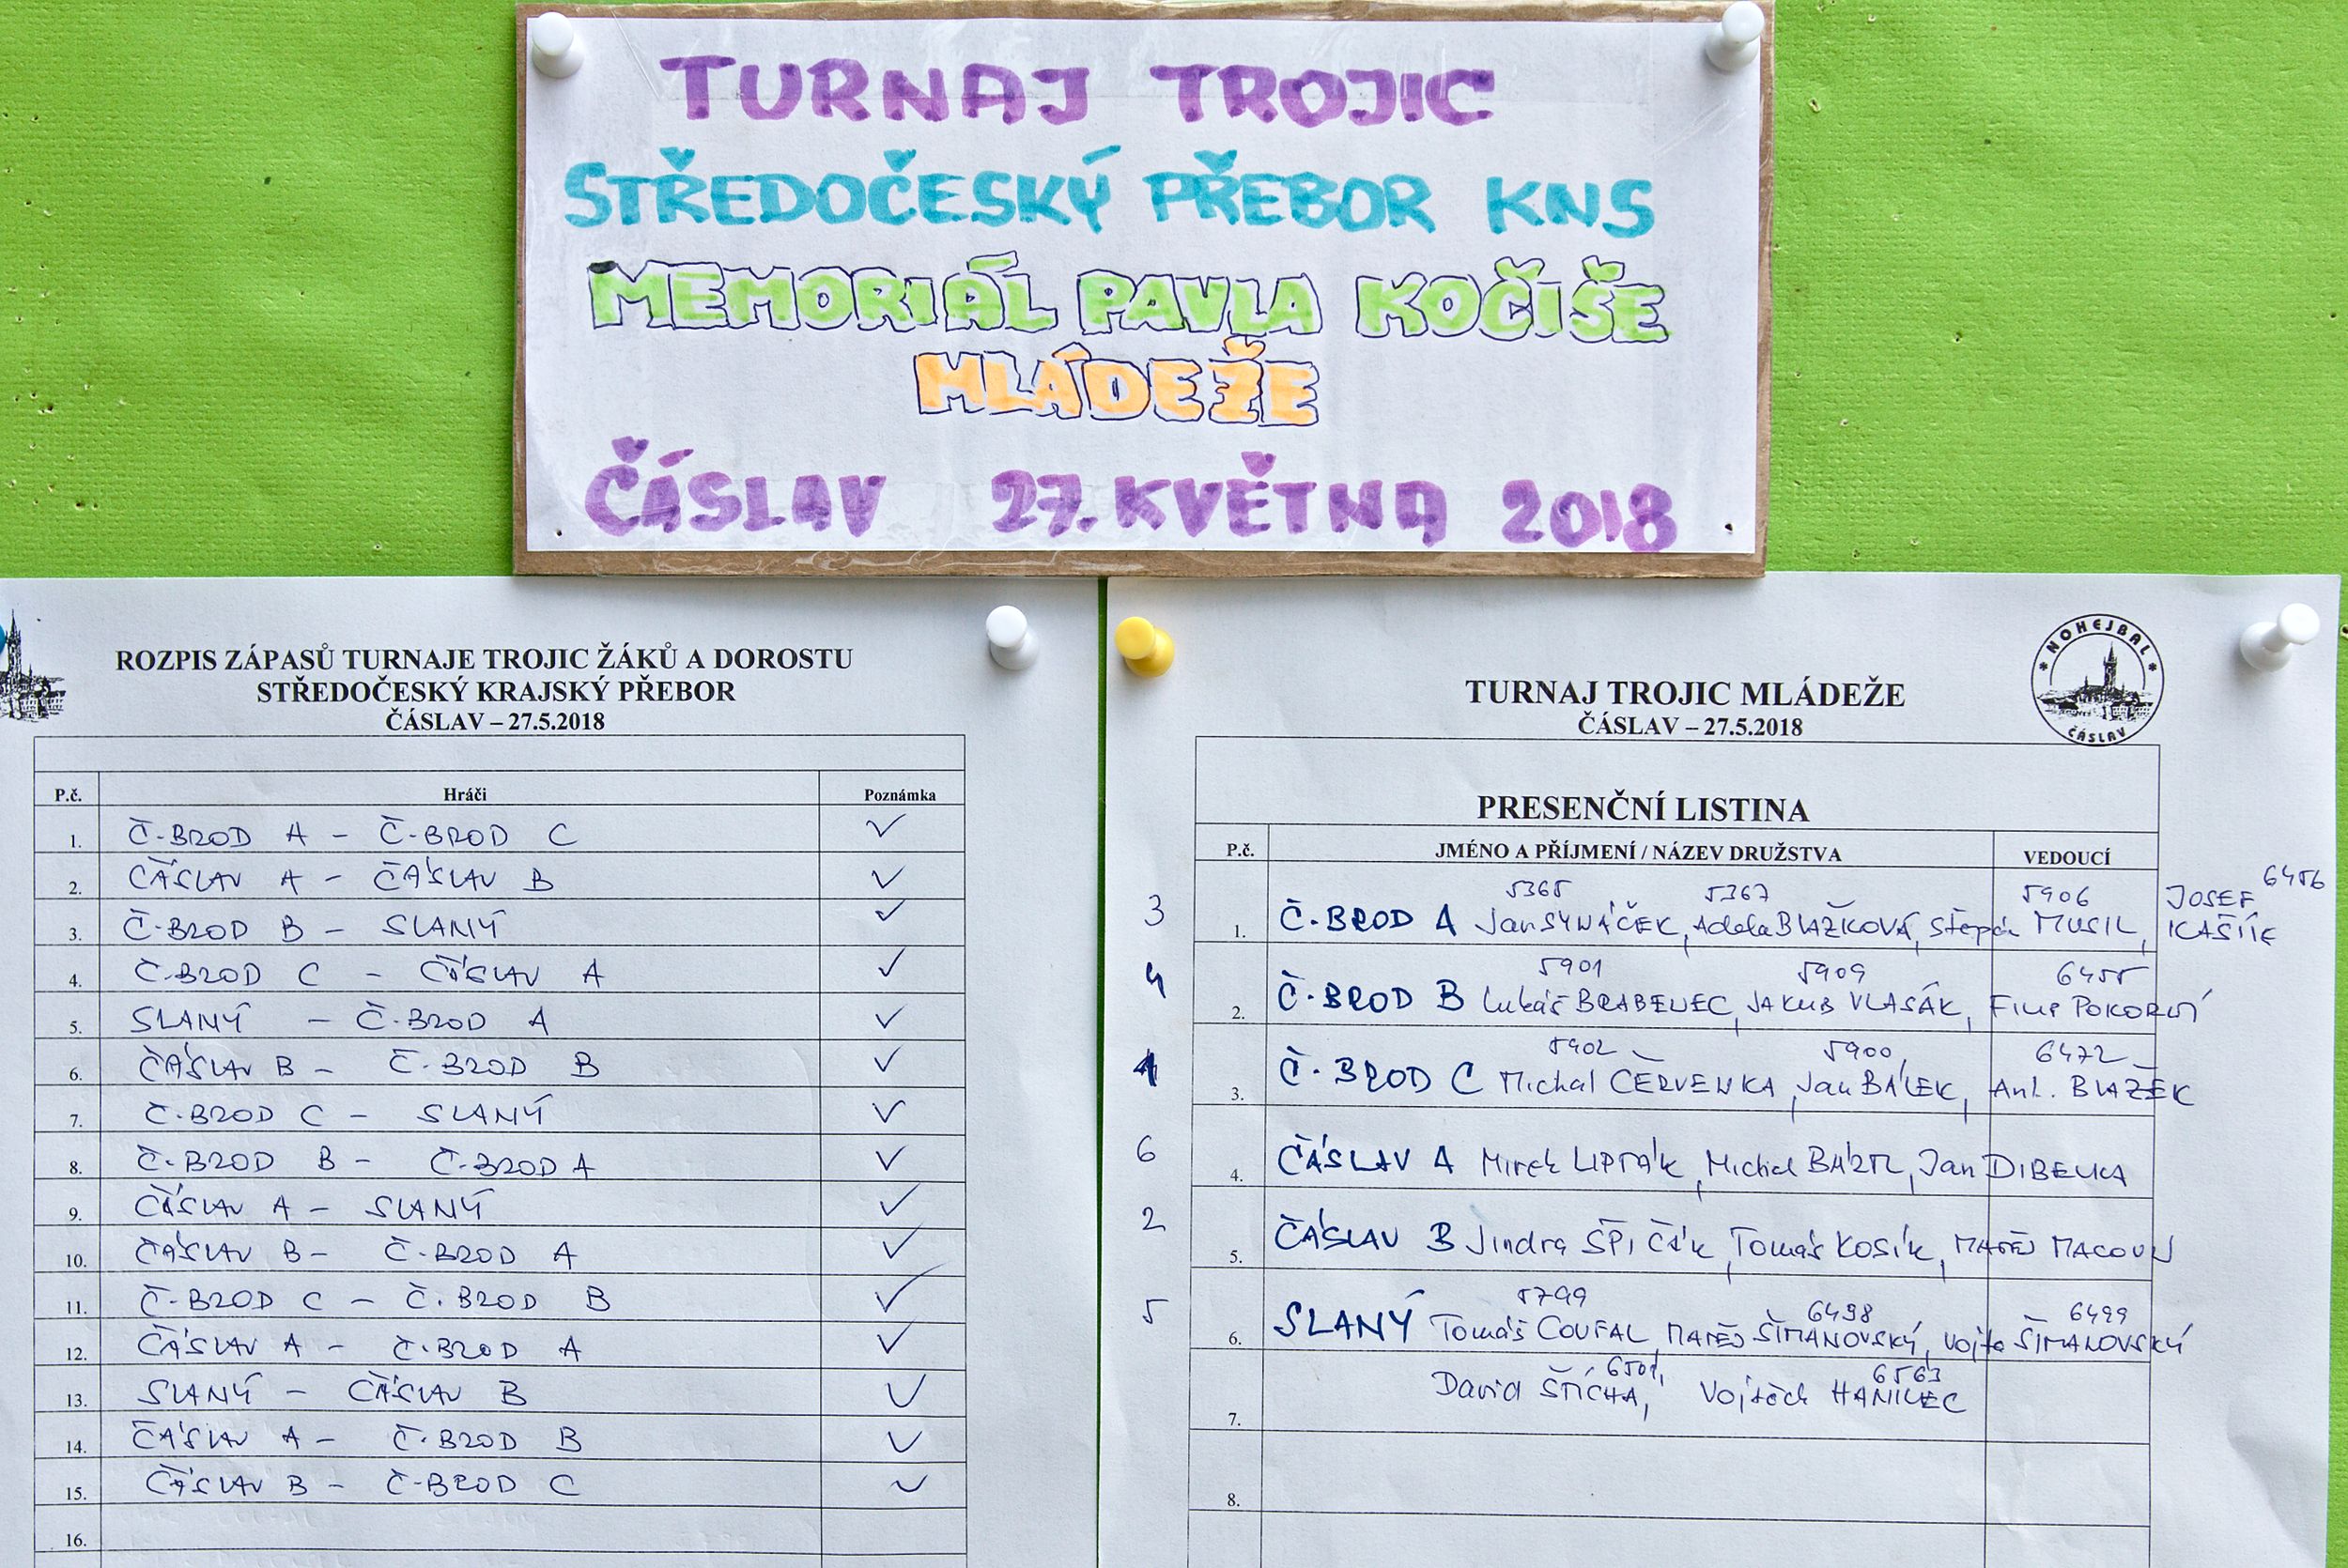 TURNAJ TROJIC
STŘEDOČESKÝ PŘEBOR KNS
MEMORIÁL PAVLA KOČIŠE
MLÁDEŽE
ČÁSLAV 27. KVĚTNA 2018
ROZPIS ZÁPASŮ TURNAJE TROJIC ŽÁKŮ A DOROSTU
STŘEDOČESKÝ KRAJSKÝ PŘEBOR
ČÁSLAV – 27.5.2018
P.č. Hráči Poznámka
1. Č-BROD A – Č-BROD C ✓
2. ČÁSLAV A – ČÁSLAV B ✓
3. Č-BROD B – SLANÝ ✓
4. Č-BROD C – ČÁSLAV A ✓
5. SLANÝ – Č-BROD A ✓
6. ČÁSLAV B – Č-BROD B ✓
7. Č-BROD C – SLANÝ ✓
8. Č-BROD B – Č-BROD A ✓
9. ČÁSLAV A – SLANÝ ✓
10. ČÁSLAV B – Č-BROD A ✓
11. Č-BROD C – Č.BROD B ✓
12. ČÁSLAV A – Č.BROD A ✓
13. SLANÝ – ČÁSLAV B ✓
14. ČÁSLAV A – Č-BROD B ✓
15. ČÁSLAV B – Č-BROD C ✓
16.
NOHEJBAL
ČÁSLAV
TURNAJ TROJIC MLÁDEŽE
ČÁSLAV – 27.5.2018
PRESENČNÍ LISTINA
P.č. JMÉNO A PŘÍJMENÍ / NÁZEV DRUŽSTVA VEDOUCÍ
5365 5367 5906 6456
3 1. Č.BROD A Jan SYNÁČEK, Adela BLAŽKOVÁ, Štěpán MUSIL, JOSEF
5901 5909 6455
4 2. Č.BROD B Lukáš BRABENEC, JAKUB VLASÁK, FILIP POKORNÝ
5902 5900 6472
1 3. Č.BROD C Michal ČERVENKA, Jan BÁLEK, Ant. BLAŽEK
6 4. ČÁSLAV A Mirek LIPTÁK, Michal BÁRTL, Jan DIBELKA
2 5. ČÁSLAV B Jindra ŠPIČÁK, Tomáš KOSÍK, MATĚJ MACOUN
5799 6498 6499
5 6. SLANÝ Tomáš COUFAL, MATĚJ ŠÍMANOVSKÝ, Vojta ŠÍMANOVSKÝ
6501 6563
David ŠTÍCHA, Vojtěch
7.
8.